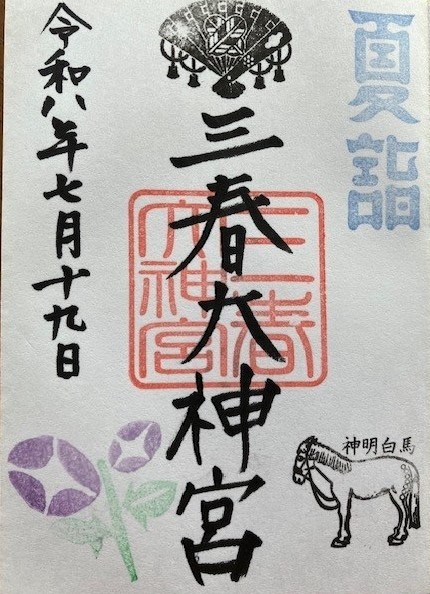 夏詣
三春大神宮
三春
大神宮
令和八年七月十九日
神明白馬